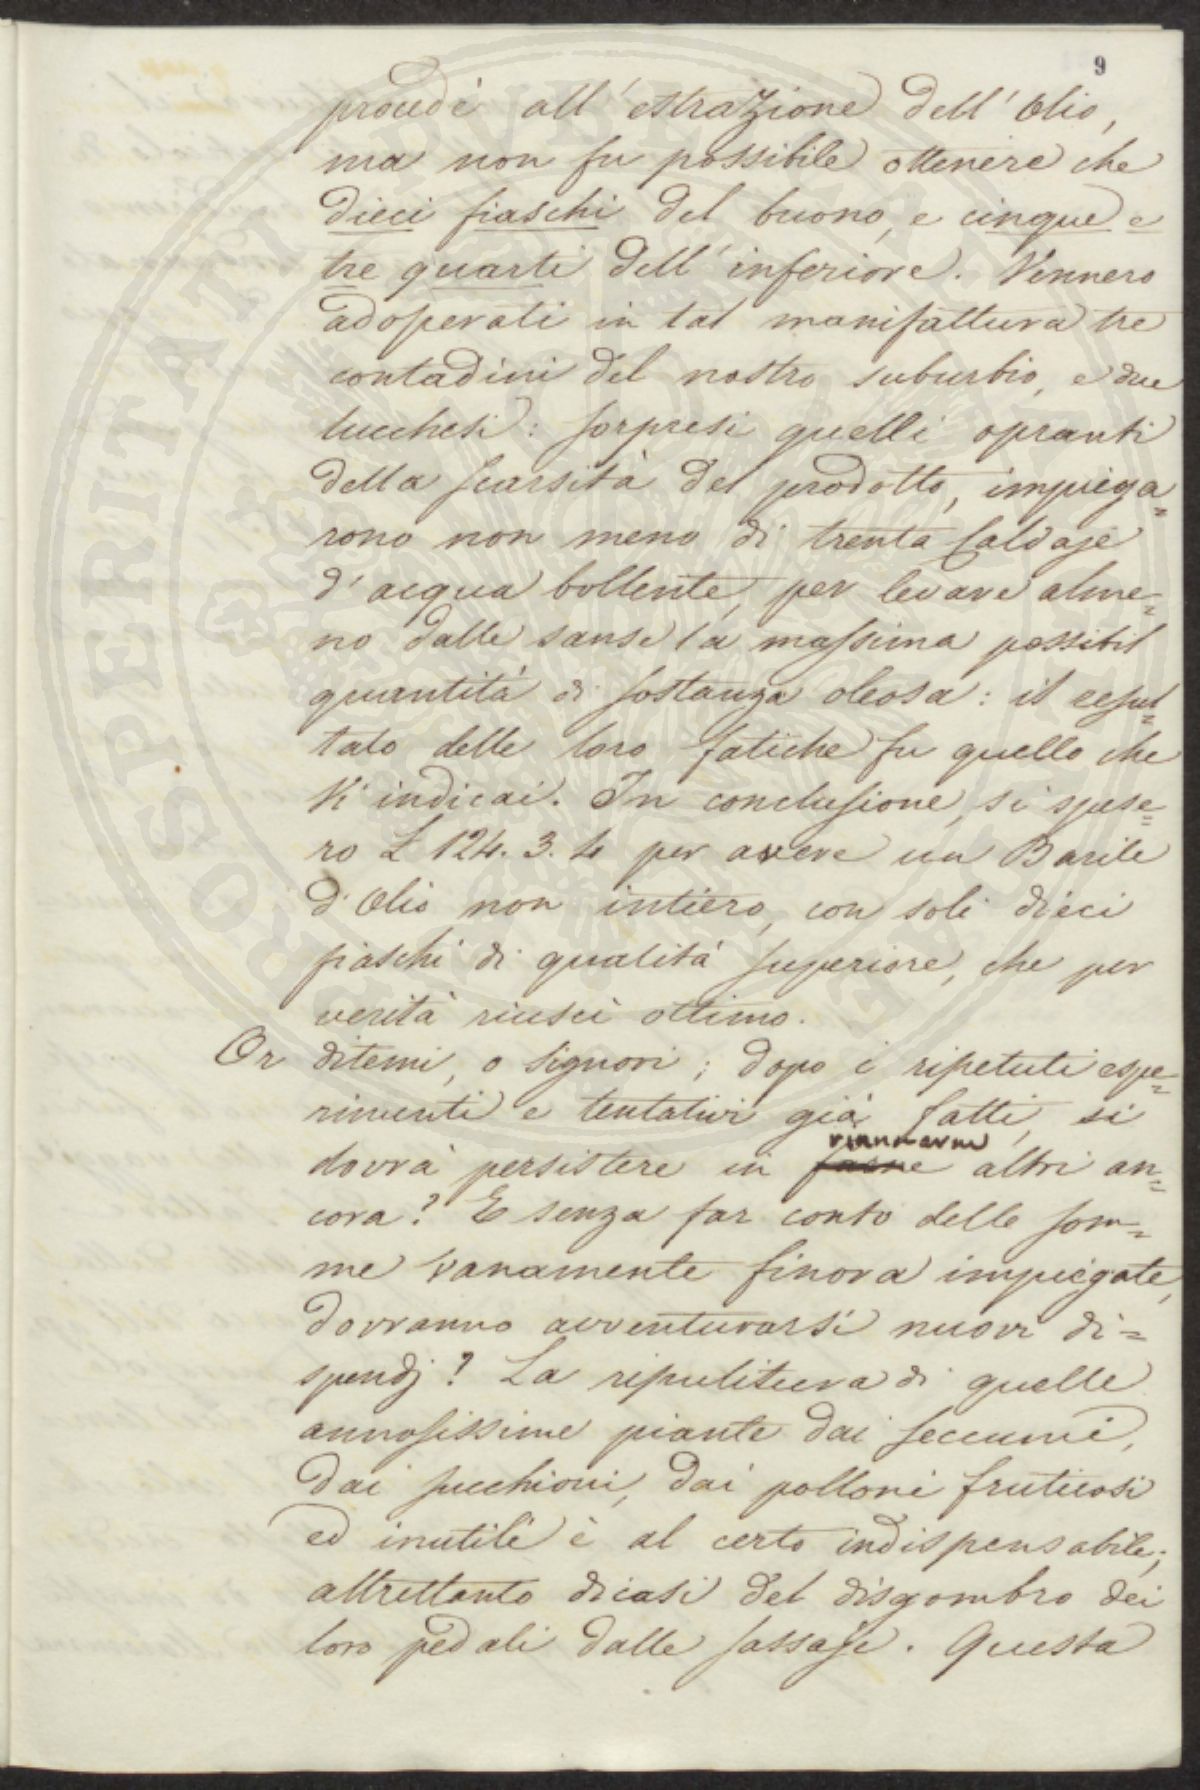 9
procedè all'estrazione dell'Olio,
ma non fu possibile ottenere che
dieci fiaschi del buono, e cinque e
tre quarti dell'inferiore. Vennero
adoperati in tal manifattura tre
contadini del nostro suburbio, e due
lucchesi: sorpresi quelli opranti
della scarsità del prodotto, impiega=
rono non meno di trenta Caldaje
d'acqua bollente, per levare alme=
no dalle sanse la massima possibil
quantità di sostanza oleosa: il resul=
tato delle loro fatiche fu quello che
Vi indicai. In conclusione, si spese=
ro £ 124. 3. 4 per avere un Barile
d'Olio non intiero, con soli dieci
fiaschi di qualità superiore, che per
verità riuscì ottimo.
Or ditemi, o Signori; dopo i ripetuti espe=
rimenti e tentativi già fatti, si
rinnovarne
dovrà persistere in farne altri an=
cora? E senza far conto delle som=
me vanamente finora impiegate,
dovranno avventurarsi nuovi di=
spendj? La ripulitura di quelle
annosissime piante dai seccumi,
dai succhioni, dai polloni fruticosi
ed inutili è al certo indispensabile;
altrettanto dicasi del disgombro dei
loro pedali dalle sassaje. Questa
PROSPERITATI PVBLICAE